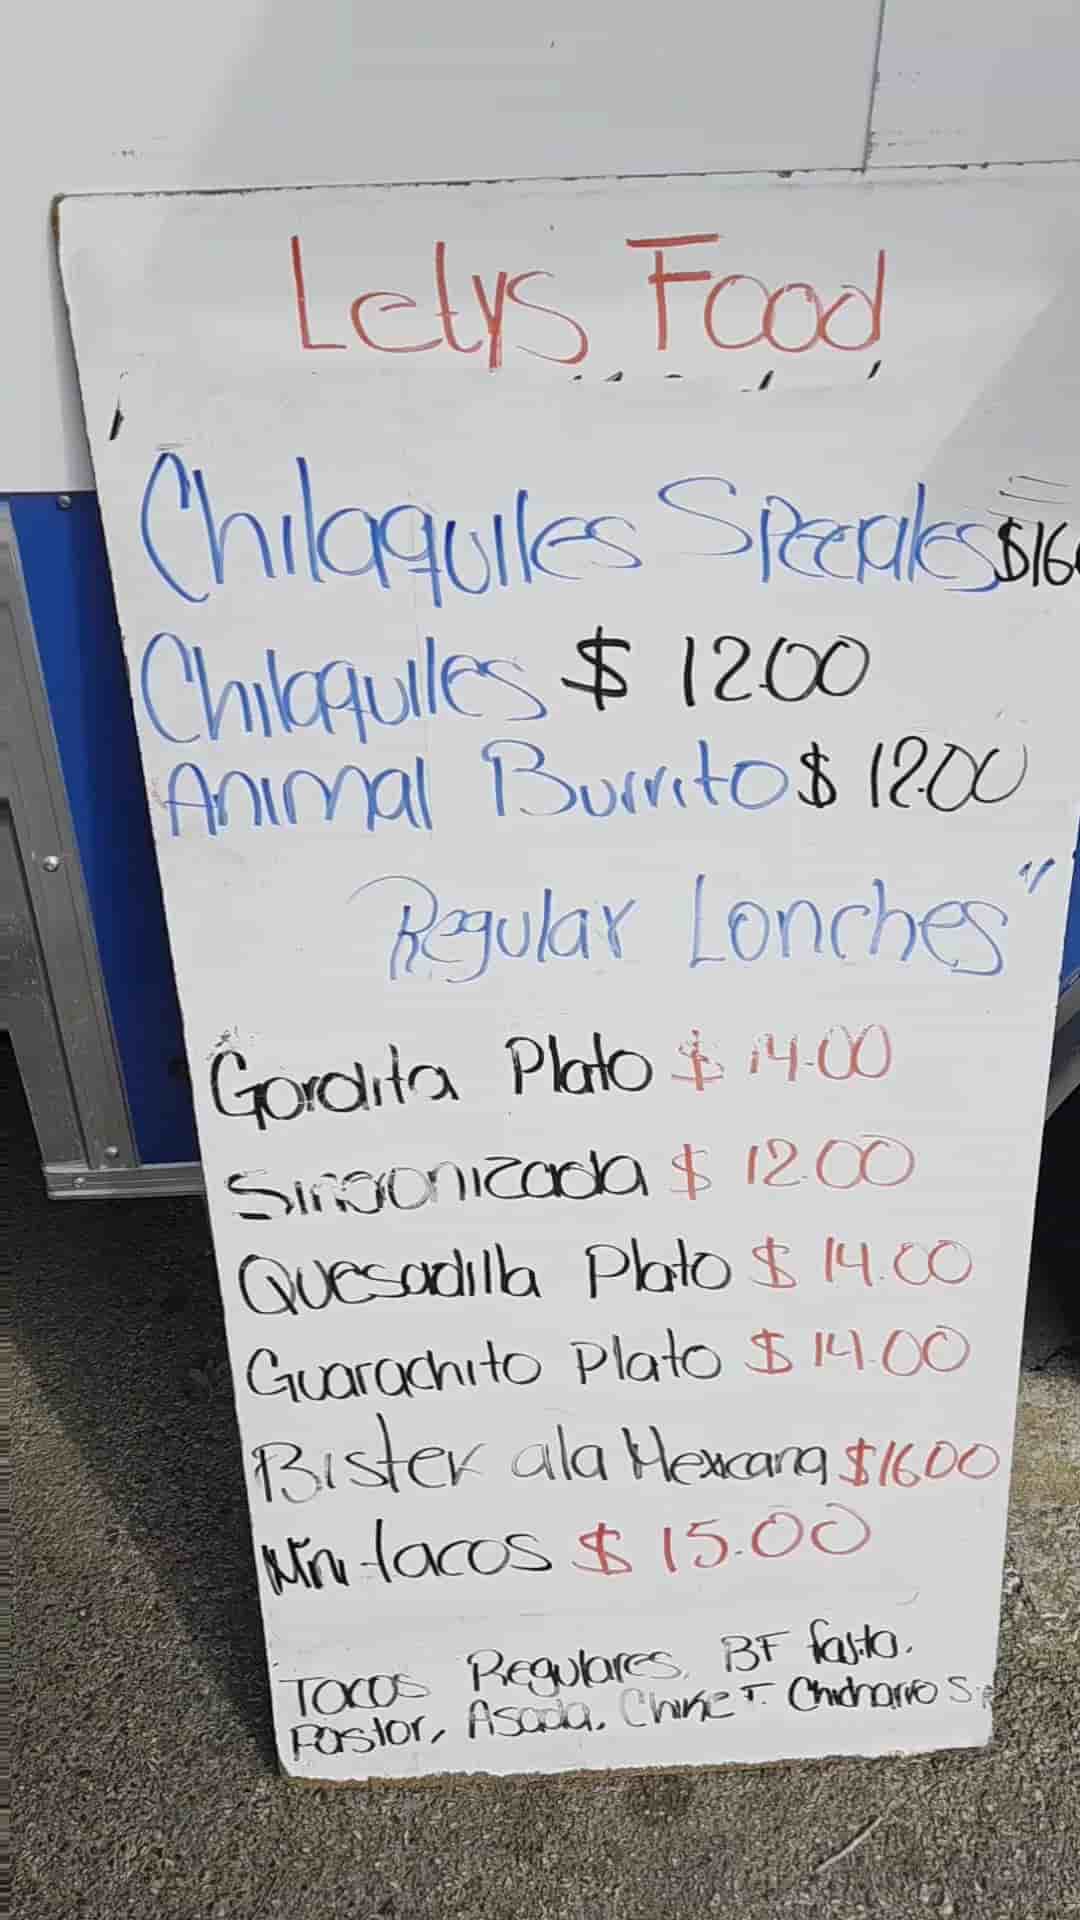 Letys Food
Chilaquiles Speciales $16
Chilaquiles $ 12.00
Animal Burrito $ 12.00
Regular Lonches"
Gordita Plato $ 14.00
Sincronizada $ 12.00
Quesadilla Plato $ 14.00
Guarachito Plato $ 14.00
Bistek ala Mexicana $16.00
Mini tacos $ 15.00
Tacos Regulares. BF fajita.
Pastor, Asada. Chicharro